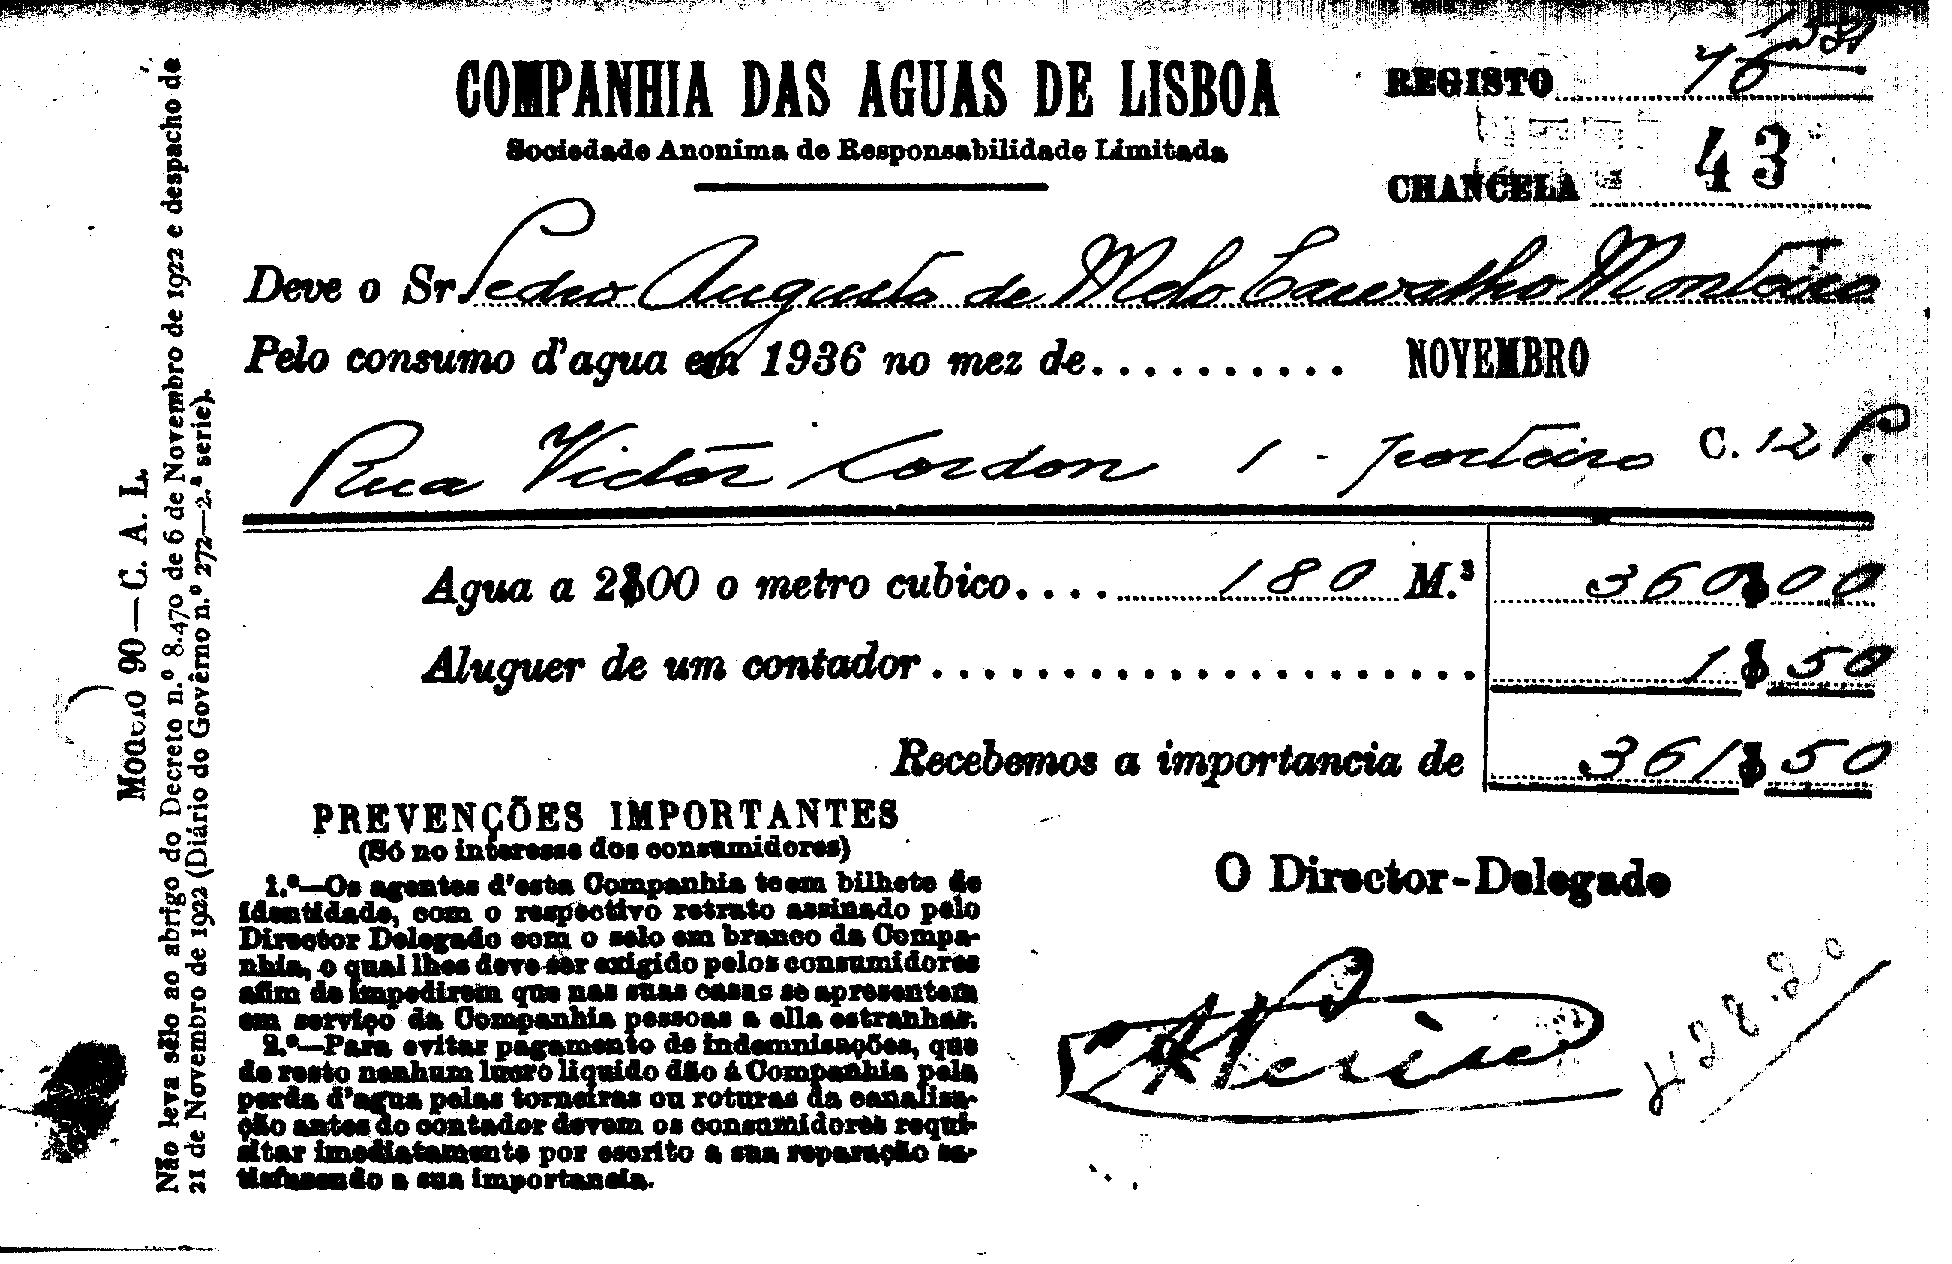 COMPANHIA DAS AGUAS DE LISBOA
Sociedade Anonima de Responsabilidade Limitada
REGISTO 76
CHANCELA 43
Deve o Sr. Pedro Augusto de Melo Carvalho Monteiro
Pelo consumo d'agua em 1936 no mez de........... NOVEMBRO
Rua Victor Cordon 1 - porteiro C. 12 P.
Agua a 2$00 o metro cubico.... 180 M.³ 360$00
Aluguer de um contador..................... 1$50
Recebemos a importancia de 361$50
PREVENÇÕES IMPORTANTES
(Só no interesse dos consumidores)
1.ª—Os agentes d'esta Companhia teem bilhete de
identidade, com o respectivo retrato assinado pelo
Director Delegado com o selo em branco da Compa-
nhia, o qual lhes deve ser exigido pelos consumidores
afim de impedirem que nas suas casas se apresentem
em serviço da Companhia pessoas a ella estranhas.
2.ª—Para evitar pagamento de indemnisações, que
de resto nenhum lucro liquido dão á Companhia pela
perda d'agua pelas torneiras ou roturas da canalisa-
ção antes do contador devem os consumidores requi-
sitar imediatamente por escrito a sua reparação sa-
tisfasendo a sua importancia.
O Director-Delegado
Modelo 90—C. A. L.
Não leva sêlo ao abrigo do Decreto n.º 8.470 de 6 de Novembro de 1922 e despacho de
21 de Novembro de 1922 (Diário do Govêrno n.º 272—2.ª serie).